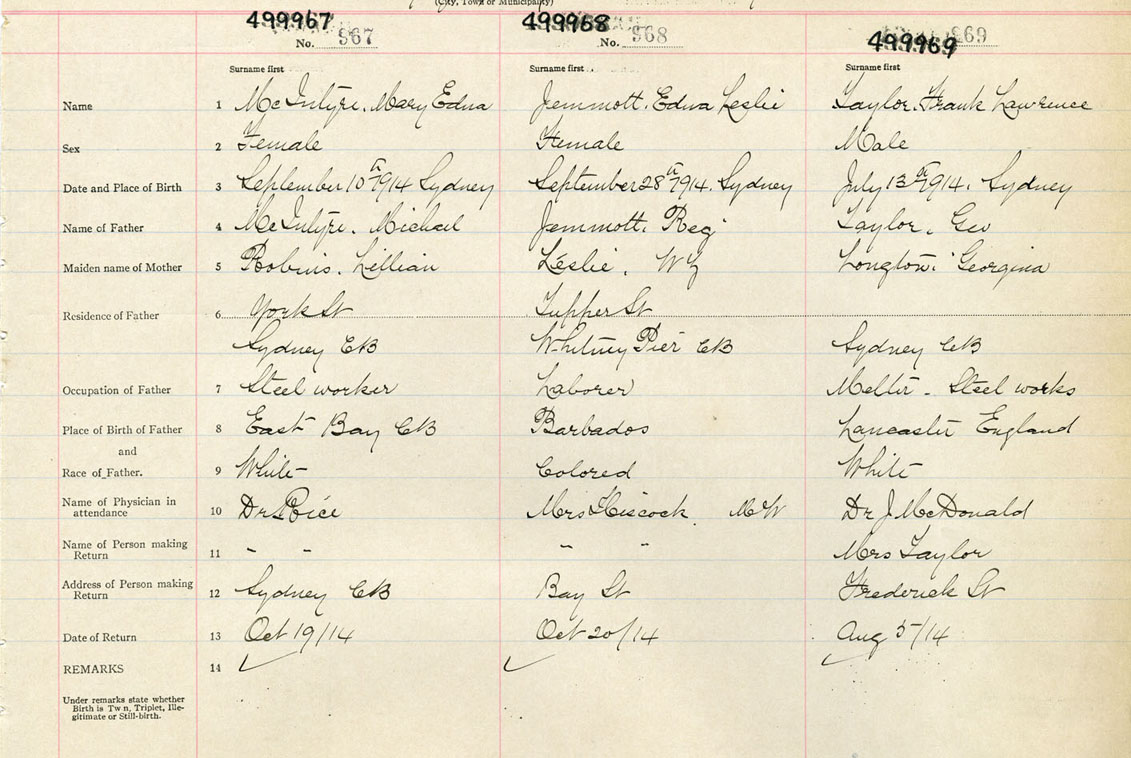 (City, Town or Municipality)
499967 499968 499969
No. 967 No. 968 969
Surname first Surname first Surname first
Name 1 McIntyre, Mary Edna Jemmott, Edna Leslie Taylor, Frank Lawrence
Sex 2 Female Female Male
Date and Place of Birth 3 September 10th 1914 Sydney September 28th 1914, Sydney July 13th 1914, Sydney
Name of Father 4 McIntyre, Michael Jemmott, Reg Taylor, Geo
Maiden name of Mother 5 Robins, Lillian Leslie, Longton, Georgina
Residence of Father 6 York St Tupper St
Sydney CB Whitney Pier CB Sydney CB
Occupation of Father 7 Steel worker Laborer Melter - Steel works
Place of Birth of Father 8 East Bay CB Barbados Lancaster England
and
Race of Father. 9 White Colored White
Name of Physician in
attendance 10 Dr Mrs Hiscock MW Dr J McDonald
Name of Person making
Return 11 " " " " Mrs Taylor
Address of Person making
Return 12 Sydney CB Bay St Frederick St
Date of Return 13 Oct 19/14 Oct 20/14 Aug 5/14
REMARKS 14 ✓ ✓ ✓
Under remarks state whether
Birth is Twin, Triplet, Ille-
gitimate or Still-birth.